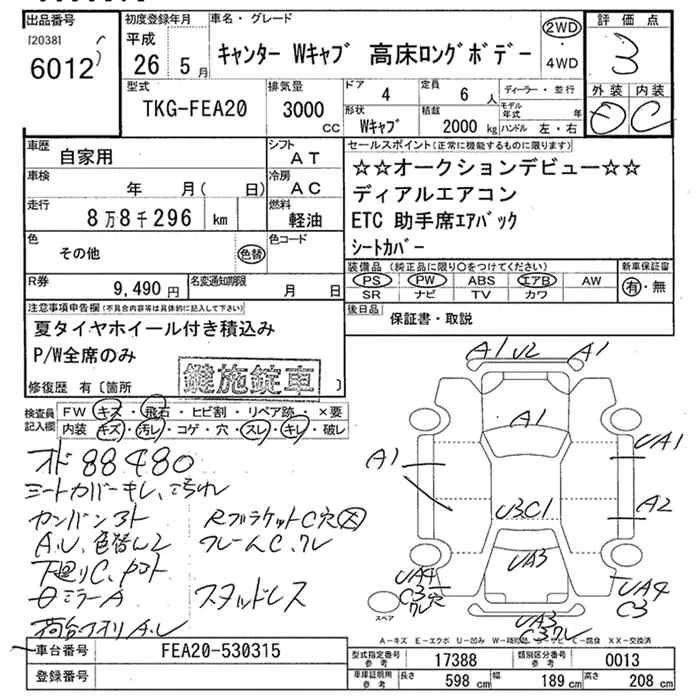 出品番号
[2038]
6012
初度登録年月
平成
26 5月
車名・グレード
キャンター Wキャブ 高床ロングボデー
2WD
・
4WD
評価点
3
外装 内装
D C
型式
TKG-FEA20
排気量
3000
cc
ドア
4
定員
6人
ディーラー・並行
モデル年式 年
形状
Wキャブ
積載
2000 kg
ハンドル 左・右
車歴
自家用
シフト
AT
車検
年 月(日)
冷房
AC
走行
8万8千296 km
燃料
軽油
色
その他
色替
色コード
R券
9,490円
名変通知期限
月 日
セールスポイント(正常に機能するものに限ります)
☆☆オークションデビュー☆☆
ディアルエアコン
ETC 助手席エアバック
シートカバー
装備品(純正品に限り○をつけてください)
新車保証書
PS PW ABS エアB AW
SR ナビ TV カワ
有・無
後日品
保証書・取説
注意事項申告欄(不具合内容等は具体的に記入して下さい)
夏タイヤホイール付き積込み
P/W全席のみ
修復歴 有〔箇所 〕
鍵施錠車
検査員記入欄
FW キズ・飛石・ヒビ割・リペア跡・×要
内装 キズ・汚レ・コゲ・穴・スレ・キレ・破レ
オド 88480
シートカバーキレ、汚れ
カンバン3ト
Rブラケット C穴
A.U、色替ム2
フレームC、クレ
下廻りC、
ミラーA
スタッドレス
荷台アオリA.U
A1 U2 A1
A1
A1
UA1
A2
U3C1
UA3
UA4
C3穴
クレ
UA4
C3
UA3
C3クレ
スペア
A-キズ E-エクボ U-凹み W-補修跡 S-サビ C-腐食 XX-交換済
車台番号
FEA20-530315
登録番号
型式指定番号
参考
17388
類別区分番号
参考
0013
車庫証明用
参考
長さ
598 cm
幅
189 cm
高さ
208 cm